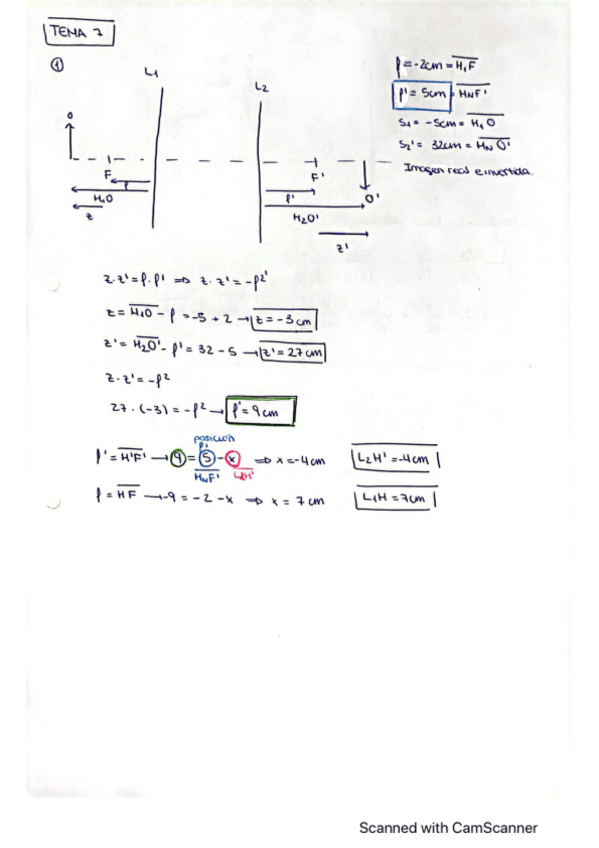 TEMA 7
①
L1
L2
f = -2cm = H₁F
f' = 5cm = HNF'
S1 = -5cm = H₁O
S2' = 32cm = HN O'
Imagen real e invertida.
O
F
F'
f
f'
H₁O
H₂O'
O'
z
z'
z·z' = f·f' ⇒ z·z' = -f²'
z = H₁O - f = -5 + 2 → z = -3cm
z' = H₂O' - f' = 32 - 5 → z' = 27cm
z·z' = -f²
27·(-3) = -f² → f' = 9cm
POSICION
f'
f' = H'F' → 9 = 5 - x ⇒ x = -4cm
L2H' = -4cm
HNF'
L2H'
f = HF → -9 = -2 - x ⇒ x = 7cm
L1H = 7cm
Scanned with CamScanner